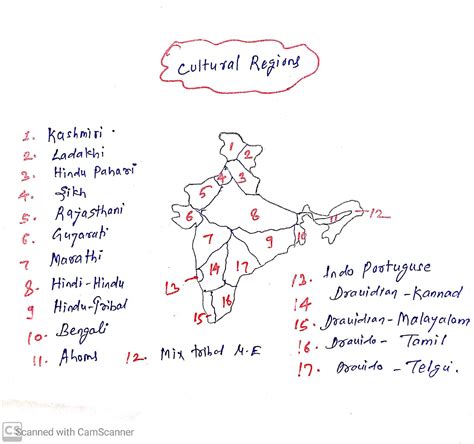 Cultural Regions
1. Kashmiri
2. Ladakhi
3. Hindu Pahari
4. Sikh
5. Rajasthani
6. Gujarati
7 Marathi
8. Hindi-Hindu
9 Hindu-Tribal
10. Bengali
11. Ahoms
12. Mix tribal N.E
1
2
4
3
5
6
8
7
9
10
11
12
13
14
17
15
16
13. Indo Portuguse
14 Dravidian - Kannad
15. Dravidian - Malayalam
16. Dravido - Tamil
17. Dravido - Telgu.
CS Scanned with CamScanner